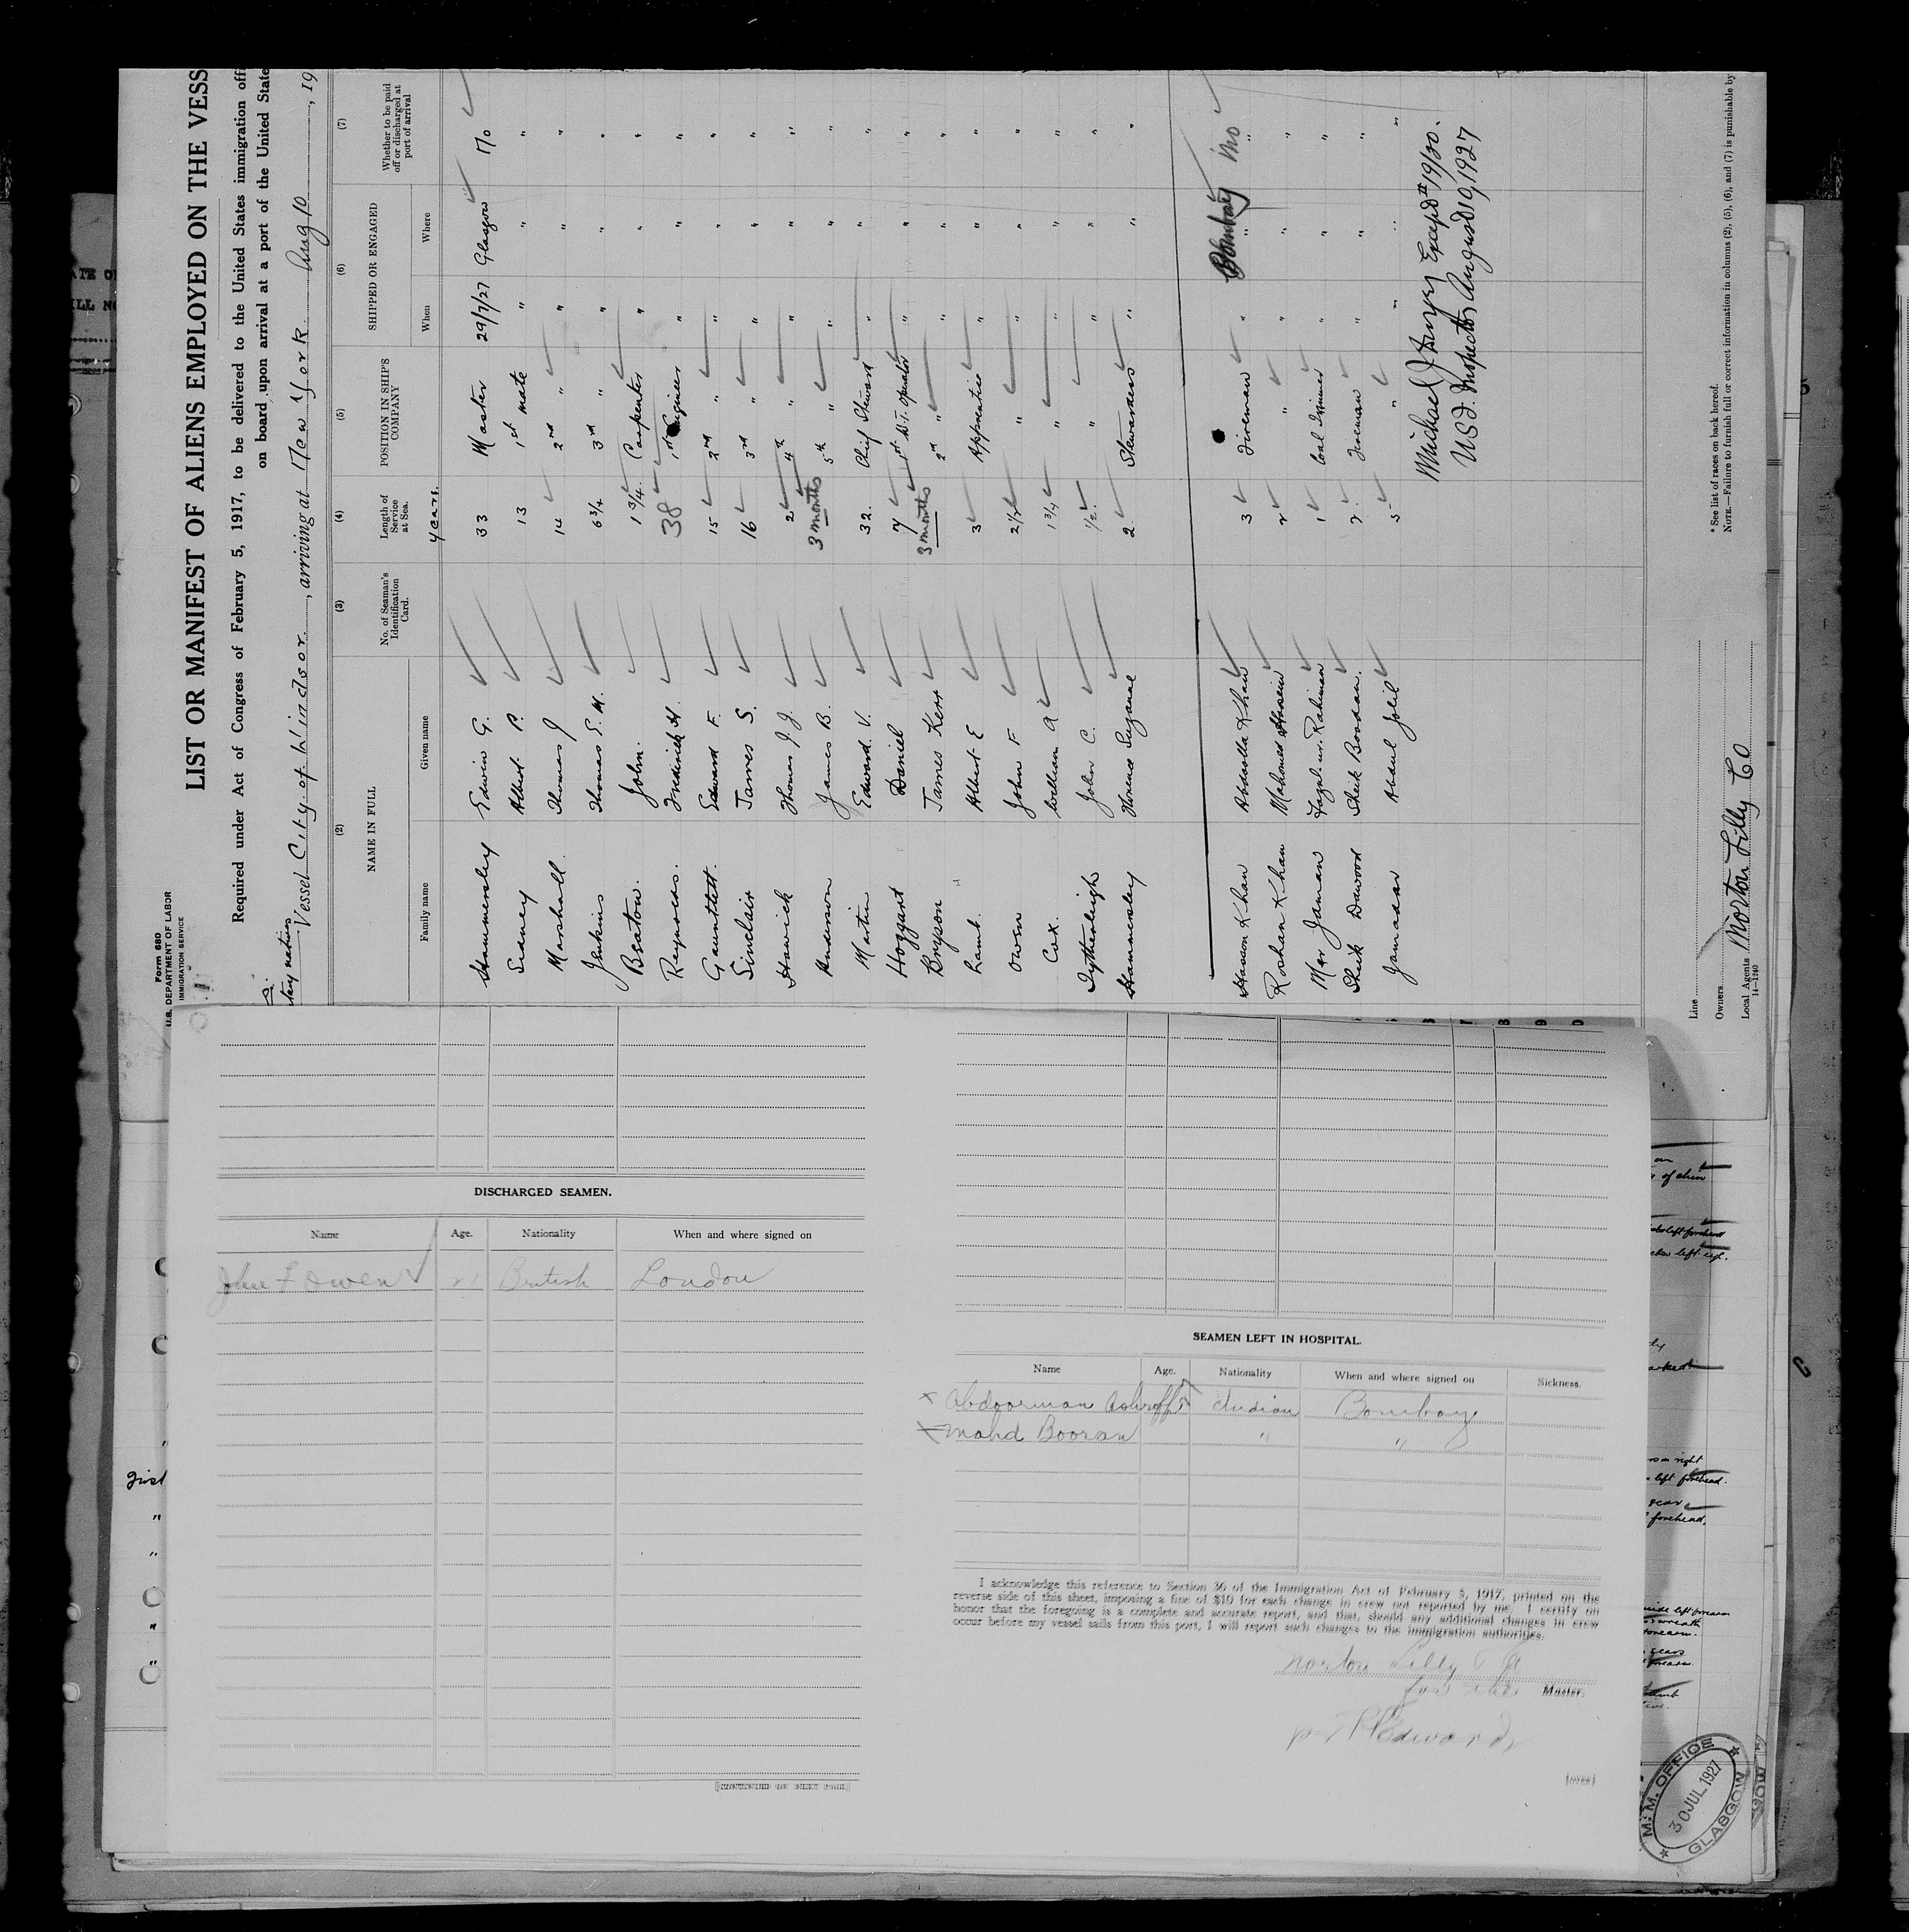 Form 680
U.S. DEPARTMENT OF LABOR
IMMIGRATION SERVICE
LIST OR MANIFEST OF ALIENS EMPLOYED ON THE VESS
Required under Act of Congress of February 5, 1917, to be delivered to the United States immigration offi
on board upon arrival at a port of the United State
Vessel City of Windsor, arriving at New York Aug 10, 19
(2) (3) (4) (5) (6) (7)
NAME IN FULL No. of Seaman's Identification Card. Length of Service at Sea. POSITION IN SHIP'S COMPANY SHIPPED OR ENGAGED Whether to be paid off or discharged at port of arrival
Family name Given name years. When Where
Hammersley Edwin G. 33 Master 29/7/27 Glasgow No
Sidney Albert P. 13 1st mate " " "
Marshall Thomas J 14 2nd " " " "
Jenkins Thomas S. M. 6 3/4 3rd " " " "
Beaton. John. 1 3/4 Carpenter " " "
Reynolds. Frederick H. 38 1st Engineer " " "
Gauntlett. Edward F. 15 2nd " " " "
Sinclair James S. 16 3rd " " " "
Hawick Thomas J. J. 2 4th " " " "
Anderson James B. 3 months 5th " " " "
Martin Edward. V. 32. Chief Steward " " "
Hoggart Daniel 7 1st W.T. Operator " " "
Bryson James Kerr 3 months 2nd " " " "
Lamb. Albert E 3 Apprentice " " "
Owen John F 2 1/2 " " " "
Cox. William A 1 3/4 " " " "
John C. 1/2 " " " "
Hammersley Florence Suzanne 2 Stewardess " " "
Bombay No
Hassan Khan Abdulla Khan 3 Fireman " " "
Roshan Khan Mahomed Hosein 2 " " " "
Mar Jaman Fazl-ur-Rahman 1 Coal Trimmer " " "
Sheik Dawood Sheik Boodan. 2 Fireman " " "
Jamadar Abdul Jolil 5 " " " "
Michael J Except # 19/30.
USI. Inspector August 10, 1927
* See list of races on back hereof.
NOTE.—Failure to furnish full or correct information in columns (2), (5), (6), and (7) is punishable by
Line
Owners
Local Agents Norton Lilly Co
14—1240
DISCHARGED SEAMEN.
Name Age. Nationality When and where signed on
John F Owen 21 British London
SEAMEN LEFT IN HOSPITAL.
Name Age. Nationality When and where signed on Sickness.
x Abdoorman Ashroff Indian Bombay
x Mahd Booran " "
I acknowledge this reference to Section 36 of the Immigration Act of February 5, 1917, printed on the
reverse side of this sheet, imposing a fine of $10 for each change in crew not reported by me. I certify on
honor that the foregoing is a complete and accurate report, and that, should any additional changes in crew
occur before my vessel sails from this port, I will report such changes to the immigration authorities.
Norton Lilly & Co
for the Master.
Edwards
(OVER)
of chin
left forehead
left eye.
marked
on right
left forehead.
scar
forehead.
left forearm
wreath
forearm.
scars
forearm.
M. M. OFFICE
30 JUL 1927
GLASGOW